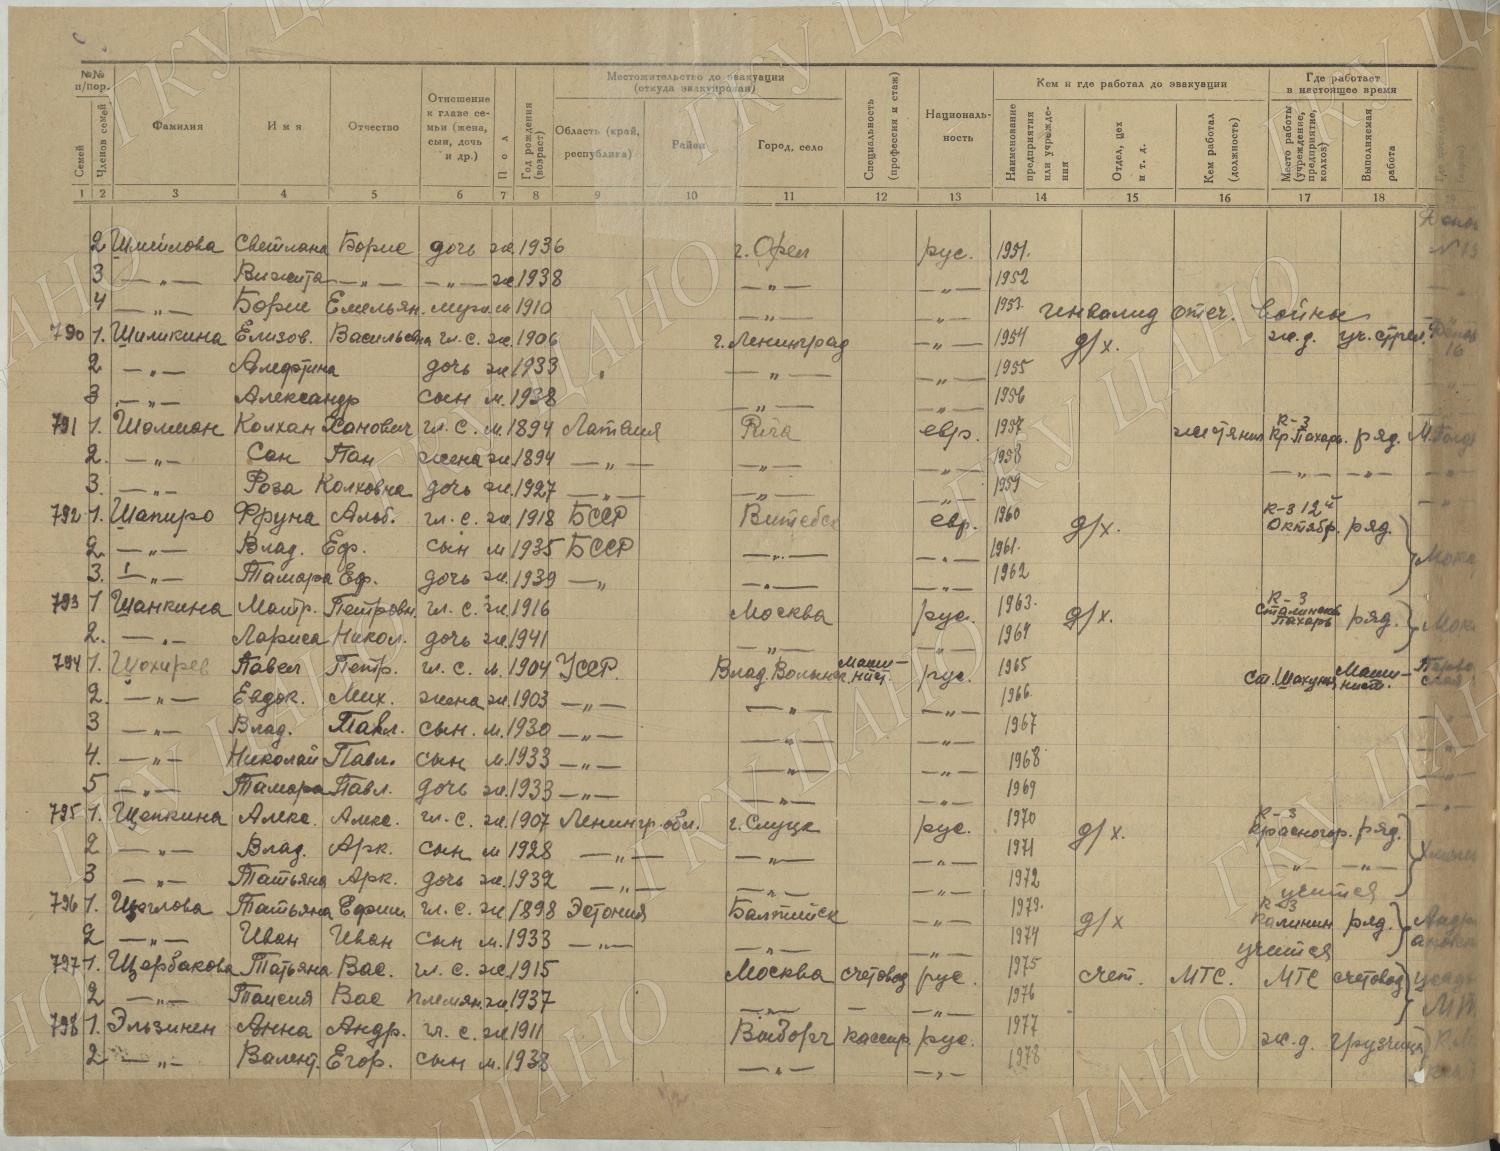 №№ п/пор.
Семей
Членов семей
Фамилия
Имя
Отчество
Отношение к главе семьи (жена, сын, дочь и др.)
Пол
Год рождения (возраст)
Местожительство до эвакуации (откуда эвакуирован)
Область (край, республика)
Район
Город, село
Специальность (профессия и стаж)
Националь-ность
Кем и где работал до эвакуации
Наименование предприятия или учрежде-ния
Отдел, цех и т. д.
Кем работал (должность)
Где работает в настоящее время
Место работы (учреждение, предприятие, колхоз)
Выполняемая работа
1 2 3 4 5 6 7 8 9 10 11 12 13 14 15 16 17 18
2 Светлана Борис дочь ж. 1936 г. Орел рус. 1951.
3 — „ — — „ — — „ — ж. 1938 — „ — — „ — 1952
4 — „ — Борис Емельян. муж. м. 1910 — „ — — „ — 1953 инвалид отеч. войны
790 1. Шишкина Елизов. Васильевна гл. с. ж. 1906 г. Ленинград — „ — 1954 д/х. ж.д. уч. стрел.
2 — „ — дочь ж. 1933 „ — „ — — „ — 1955
3 — „ — Александр сын м. 1938 — „ — — „ — 1956
791 1. Шолман Колхан Ханович гл. с. м. 1894 Латвия Рига евр. 1957 R-3 Кр. Пахарь. ряд.
2. — „ — жена ж. 1894 — „ — — „ — — „ — 1958 — „ — — „ —
3. — „ — Роза Колховна дочь ж. 1927 — „ — — „ — — „ — 1959
792 1. Шапиро Фруна Альб. гл. с. ж. 1918 БССР Витебск евр. 1960 д/х. R-3 12й Октябр. ряд.
2 — „ — Влад. Еф. сын м 1935 БССР — „ — — „ — 1961.
3. — „ — Тамара Еф. дочь ж. 1939 — „ — „ — — „ — 1962
793 1 Шанкина Матр. Петровн. гл. с. ж. 1916 Москва рус. 1963. д/х. R-3 Сталинск. Пахарь ряд.
2. — „ — Лариса Никол. дочь ж. 1941 — „ — — „ — 1964
794 1. Шохирев Павел Петр. гл. с. м. 1904 УССР. Влад. Волынск Маши-нист. рус. 1965 ст. Шахунья Маши-нист.
2 — „ — Евдок. Мих. жена ж. 1903 — „ — — „ — — „ — 1966.
3 — „ — Влад. Павл. сын. м. 1930 — „ — — „ — — „ — 1967
4. — „ — Николай Павл. сын м. 1933 — „ — — „ — — „ — 1968
5 — „ — Тамара Павл. дочь ж. 1933 — „ — — „ — — „ — 1969
795 1. Щепкина Алекс. Алекс. гл. с. ж. 1907 Ленингр. обл. г. Слуцк рус. 1970 д/х. R-3 Красногор. ряд.
2 — „ — Влад. Арк. сын м 1928 — „ — — „ — — „ — 1971 — „ — — „ —
3 — „ — Татьяна Арк. дочь ж. 1932 — „ — — „ — — „ — 1972 учится
796 1. Щеглова Татьяна Ефим. гл. с. ж 1898 Эстония Балтийск — „ — 1973. д/х R-3 Калинин ряд.
2 — „ — Иван Иван сын м. 1933 — „ — — „ — — „ — 1974 учится
797 1. Щербакова Татьяна Вас. гл. с. ж. 1915 Москва счетовод рус. 1975 счет. МТС. МТС счетовод
2 — „ — Таисия Вас племян. ж. 1937 — „ — — — „ — 1976
798 1. Эльзинен Анна Андр. гл. с. ж. 1911 Выборг кассир рус. 1977 ж.д. грузчица
2 — „ — Валент. Егор. сын м. 1938 — „ — — „ — 1978
ГКУ ЦАНО